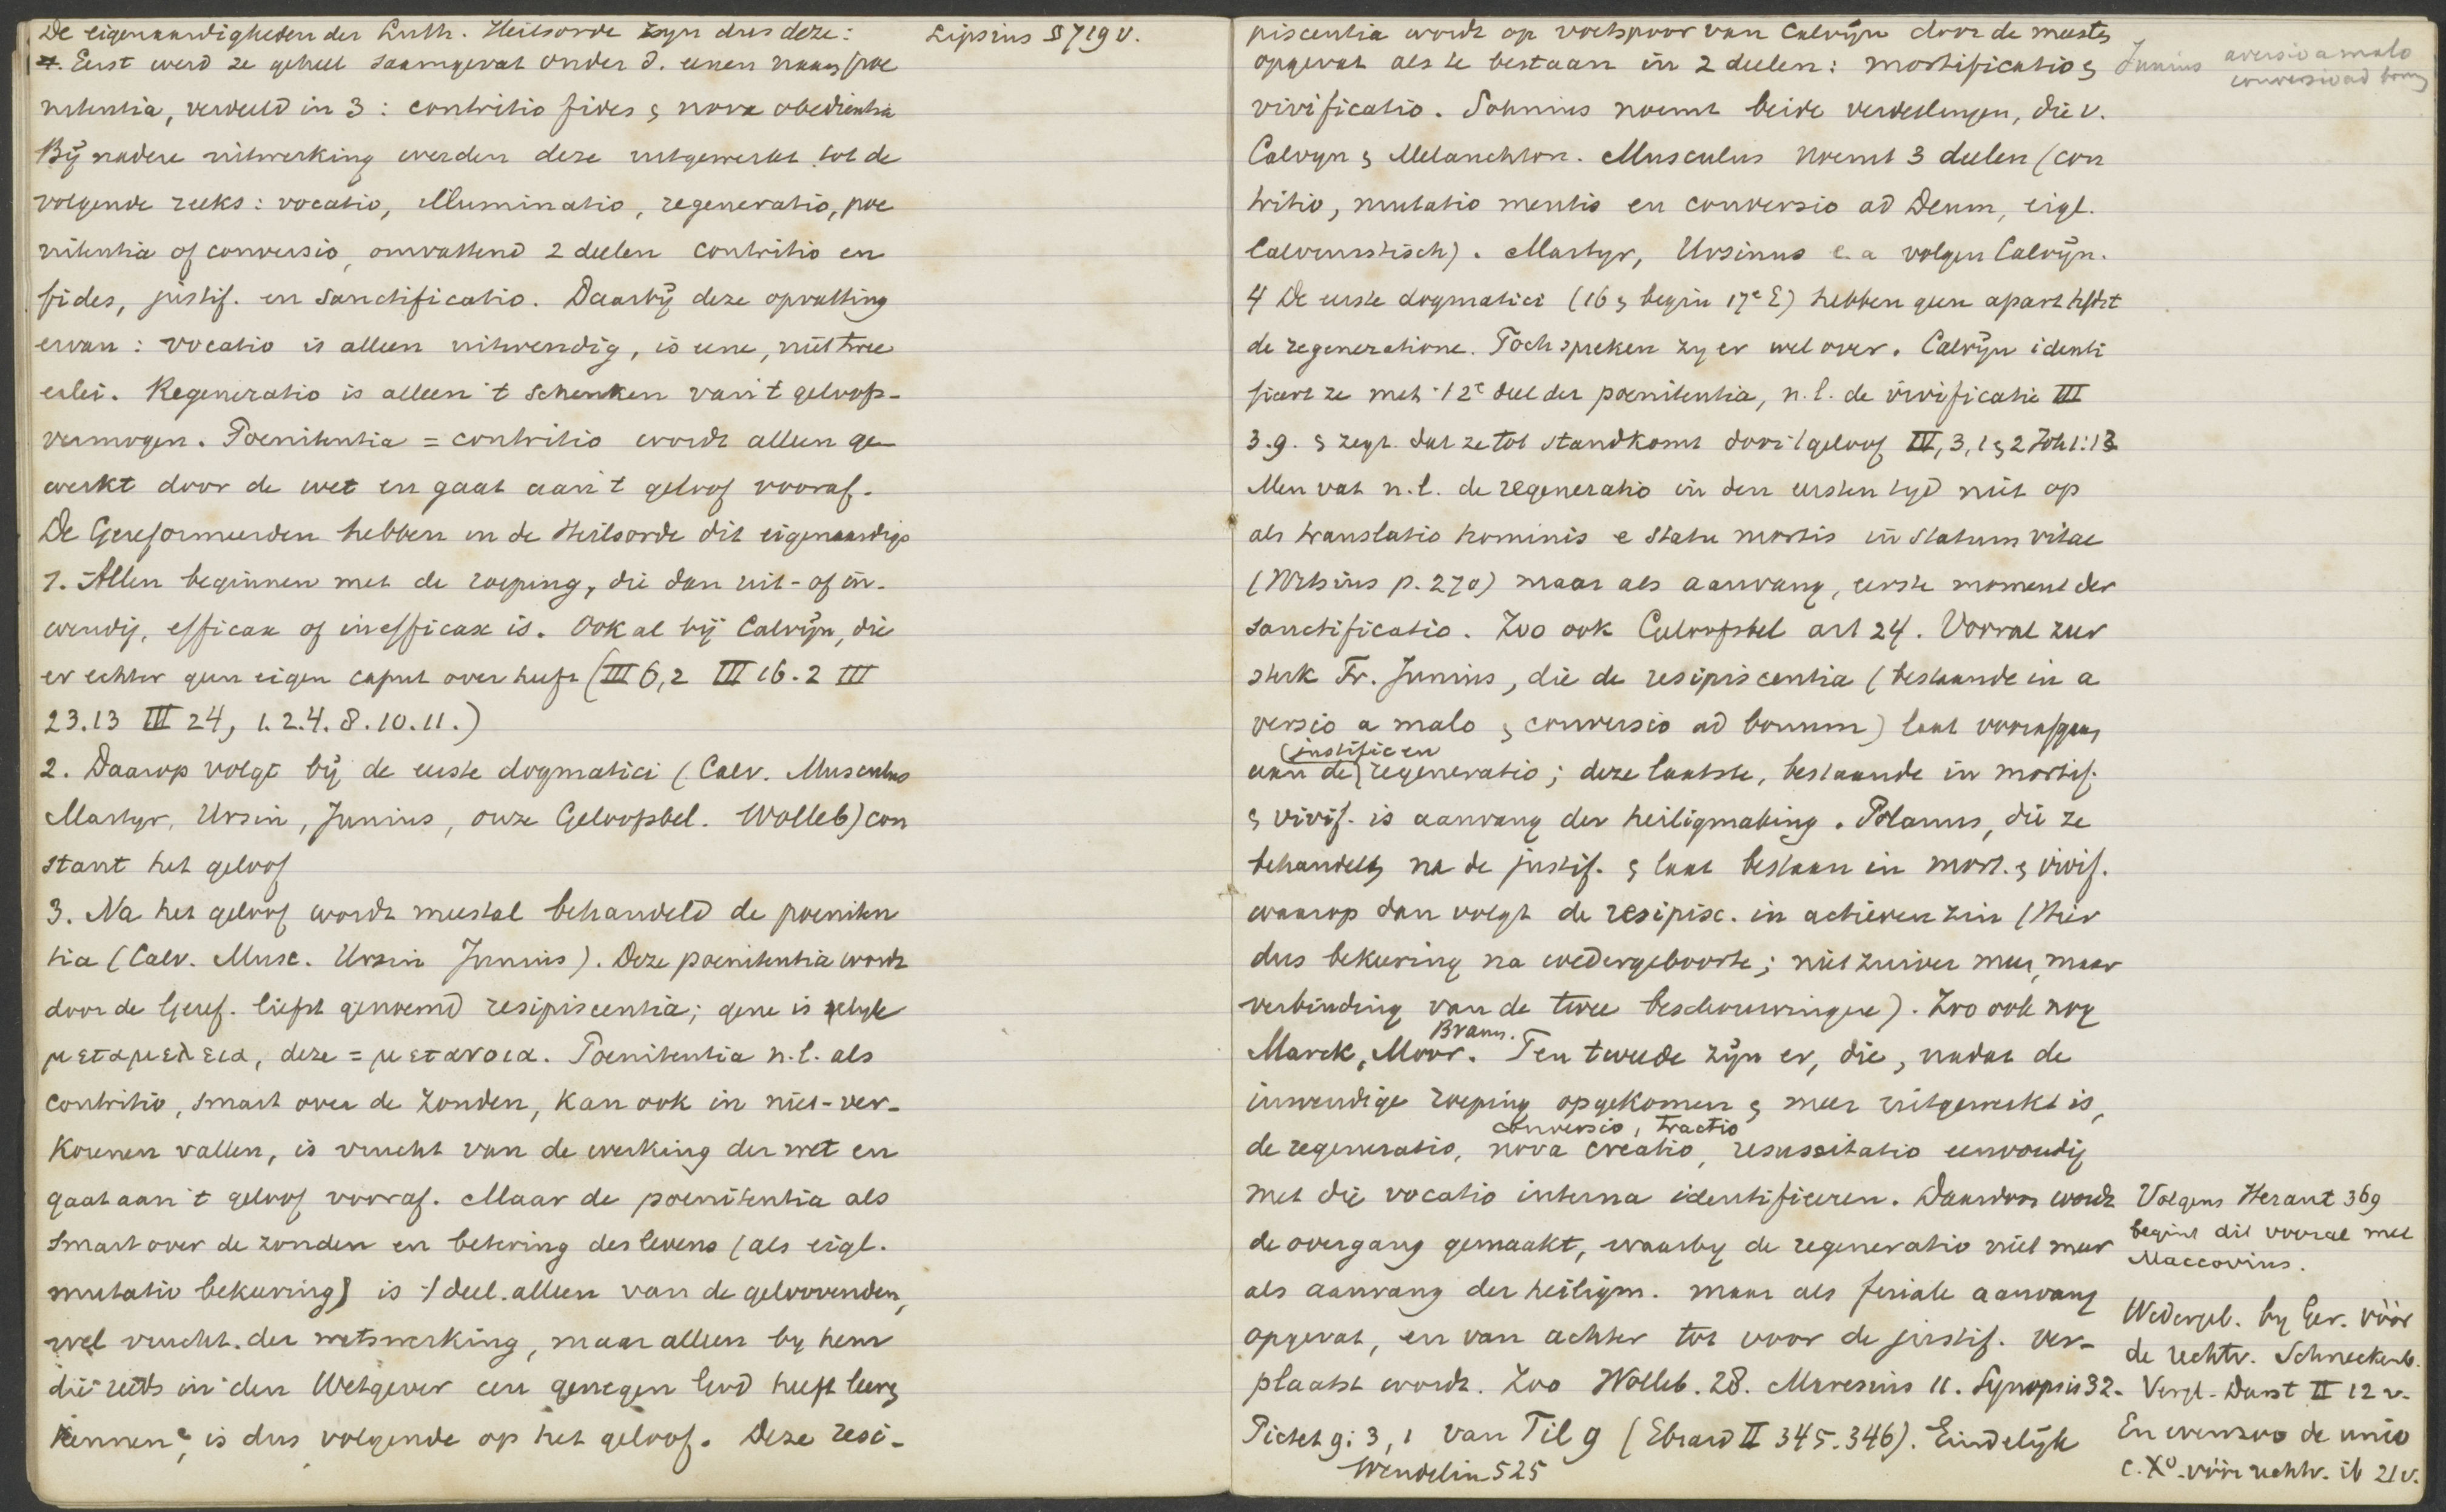 De eigenaardigheden der Luth. Heilsorde zyn dus deze:
Lipsius § 719 v.
1. Eerst werd ze geheel saamgevat onder d. eenen naam poe
nitentia, verdeeld in 3: contritio fides & nova obedientia
Bij nadere uitwerking werden deze uitgewerkt tot de
volgende reeks: vocatio, illuminatio, regeneratio, poe
nitentia of conversio, omvattend 2 deelen contritio en
fides, justif. en sanctificatio. Daarbij deze opvatting
ervan: vocatio is alleen uitwendig, is eene, niet twee
erlei. Regeneratio is alleen 't schenken van 't geloofs-
vermogen. Poenitentia = contritio wordt alleen ge
werkt door de wet en gaat aan 't geloof vooraf.
De Gereformeerden hebben in de Heilsorde dit eigenaardigs
1. Allen beginnen met de roeping, die dan uit- of in-
wendig, efficax of inefficax is. Ook al bij Calvijn, die
er echter geen eigen caput over heeft (III 6,2 III 16.2 III
23.13 III 24, 1.2.4.8.10.11.)
2. Daarop volgt bij de eerste dogmatici (Calv. Musculus
Martyr, Ursin, Junius, onze Geloofsbel. Wolleb) con
stant het geloof
3. Na het geloof wordt meestal behandeld de poeniten
tia (Calv. Musc. Ursin Junius). Deze poenitentia wordt
door de Geref. liefst genoemd resipiscentia; gene is gelyk
μεταμελεια, deze = μετανοια. Poenitentia n.l. als
contritio, smart over de zonden, kan ook in niet-ver-
korenen vallen, is vrucht van de werking der wet en
gaat aan 't geloof vooraf. Maar de poenitentia als
smart over de zonden en betering des levens (als eigl.
mutatio bekeering) is 't deel alleen van de geloovenden,
wel vrucht der wetswerking, maar alleen by hem
die reeds in den Wetgever een genegen God heeft leeren
kennen, is dus volgende op het geloof. Deze resi-
piscentia wordt op voetspoor van Calvijn door de meesten
opgevat als te bestaan in 2 deelen: mortificatio &
Junius aversio a malo
conversio ad bonum
vivificatio. Sohnius noemt beide verdeelingen, die v.
Calvyn & Melanchton. Musculus noemt 3 deelen (con
tritio, mutatio mentis en conversio ad Deum, eigl.
Calvinistisch). Martyr, Ursinus e.a volgen Calvijn.
4 De eerste dogmatici (16 & begin 17e E) hebben geen apart hfdst
de regeneratione. Toch spreken zy er wel over. Calvijn identi
ficeert ze met 't 2e deel der poenitentia, n.l. de vivificatie III
3.9. & zegt dat ze tot stand komt door 't geloof III, 3, 1 & 2 Joh 1:13
Men vat n.l. de regeneratio in den eersten tyd niet op
als translatio hominis e statu mortis in statum vitae
(Witsius p. 270) maar als aanvang, eerste moment der
sanctificatio. Zoo ook Geloofsbel art 24. Vooral zeer
sterk Fr. Junius, die de resipiscentia (bestaande in a
versio a malo & conversio ad bonum) laat voorafgaan
(justific en
aan de regeneratio; deze laatste, bestaande in mortif.
& vivif. is aanvang der heiligmaking. Polanus, die ze
behandelt na de justif. & laat bestaan in mort. & vivif.
waarop dan volgt de resipisc. in actieven zin (Hier
dus bekeering na wedergeboorte; niet zuiver meer, maar
verbinding van de twee beschouwingen). Zoo ook nog
Braun.
Marck, Moor. Ten tweede zijn er, die, nadat de
inwendige roeping opgekomen & meer uitgewerkt is,
conversio, tractio
de regeneratio, nova creatio, resuscitatio eenvoudig
met die vocatio interna identificeren. Daardoor wordt
de overgang gemaakt, waarby de regeneratio niet meer
als aanvang der heiligm. maar als feriale aanvang
opgevat, en van achter tot voor de justif. ver-
plaatst wordt. Zoo Wolleb. 28. Maresius 11. Synopsis 32.
Pictet 9: 3, 1 van Til 9 (Ebrard II 345.346). Eindelijk
Wendelin 525
Volgens Heraut 369
begint dit vooral met
Maccovius.
Wedergeb. by Ger. vóór
de rechtv. Schneckenb.
Vergl. Darst II 12 v.
En evenzoo de unio
c. Xo. vóór rechtv. ib 21 v.